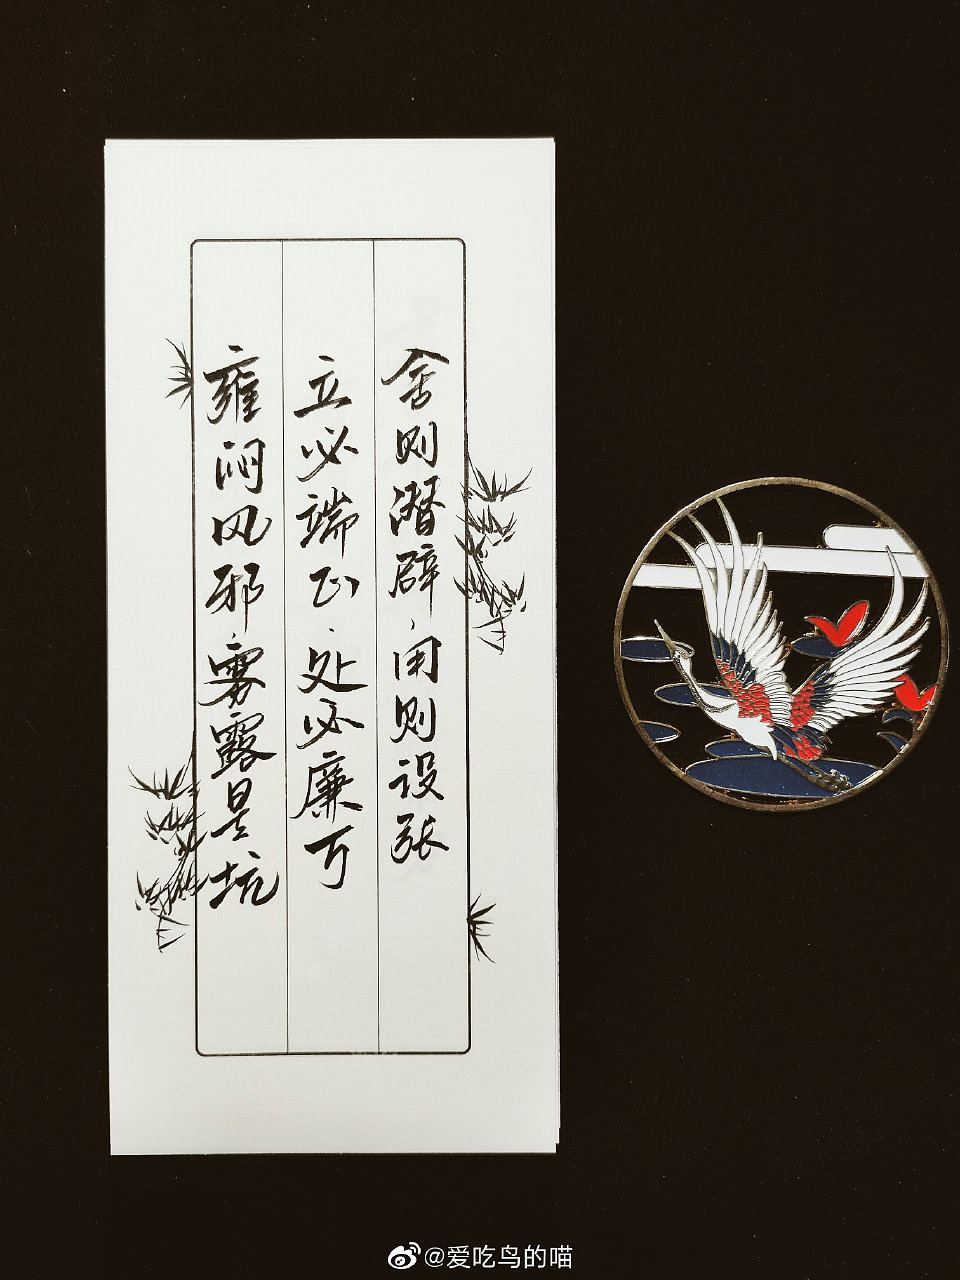 舍则潜辟，用则设张
立必端正．处必廉方
雍闷风邪雾露是坑
@爱吃鸟的喵